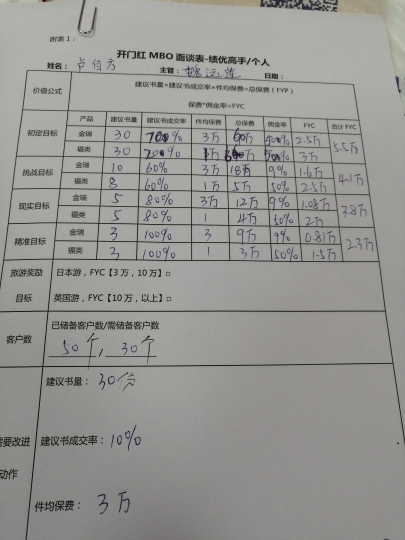 附表1：
开门红 MBO 面谈表-绩优高手/个人
姓名： 主管： 日期：
价值公式 建议书量*建议书成交率*件均保费=总保费（FYP）
保费*佣金率=FYC
产品 建议书量 建议书成交率 件均保费 总保费 佣金率 FYC 合计 FYC
初定目标 金瑞 30 3万 2.5万 5.5万
福类 30 1万 3万
挑战目标 金瑞 10 60% 3万 18万 9% 1.6万 4.1万
福类 8 60% 1万 5万 50% 2.5万
现实目标 金瑞 5 80% 3万 12万 9% 1.08万 3.8万
福类 5 80% 1 4万 50% 2万
精准目标 金瑞 3 100% 3 9万 9% 0.81万 2.3万
福类 3 100% 1 3万 50% 1.5万
旅游奖励 日本游，FYC【3万，10万】□
目标 英国游，FYC【10万，以上】□
已储备客户数/需储备客户数
客户数
50个，30个
建议书量：30份
需要改进 建议书成交率：10%
动作
件均保费：3万